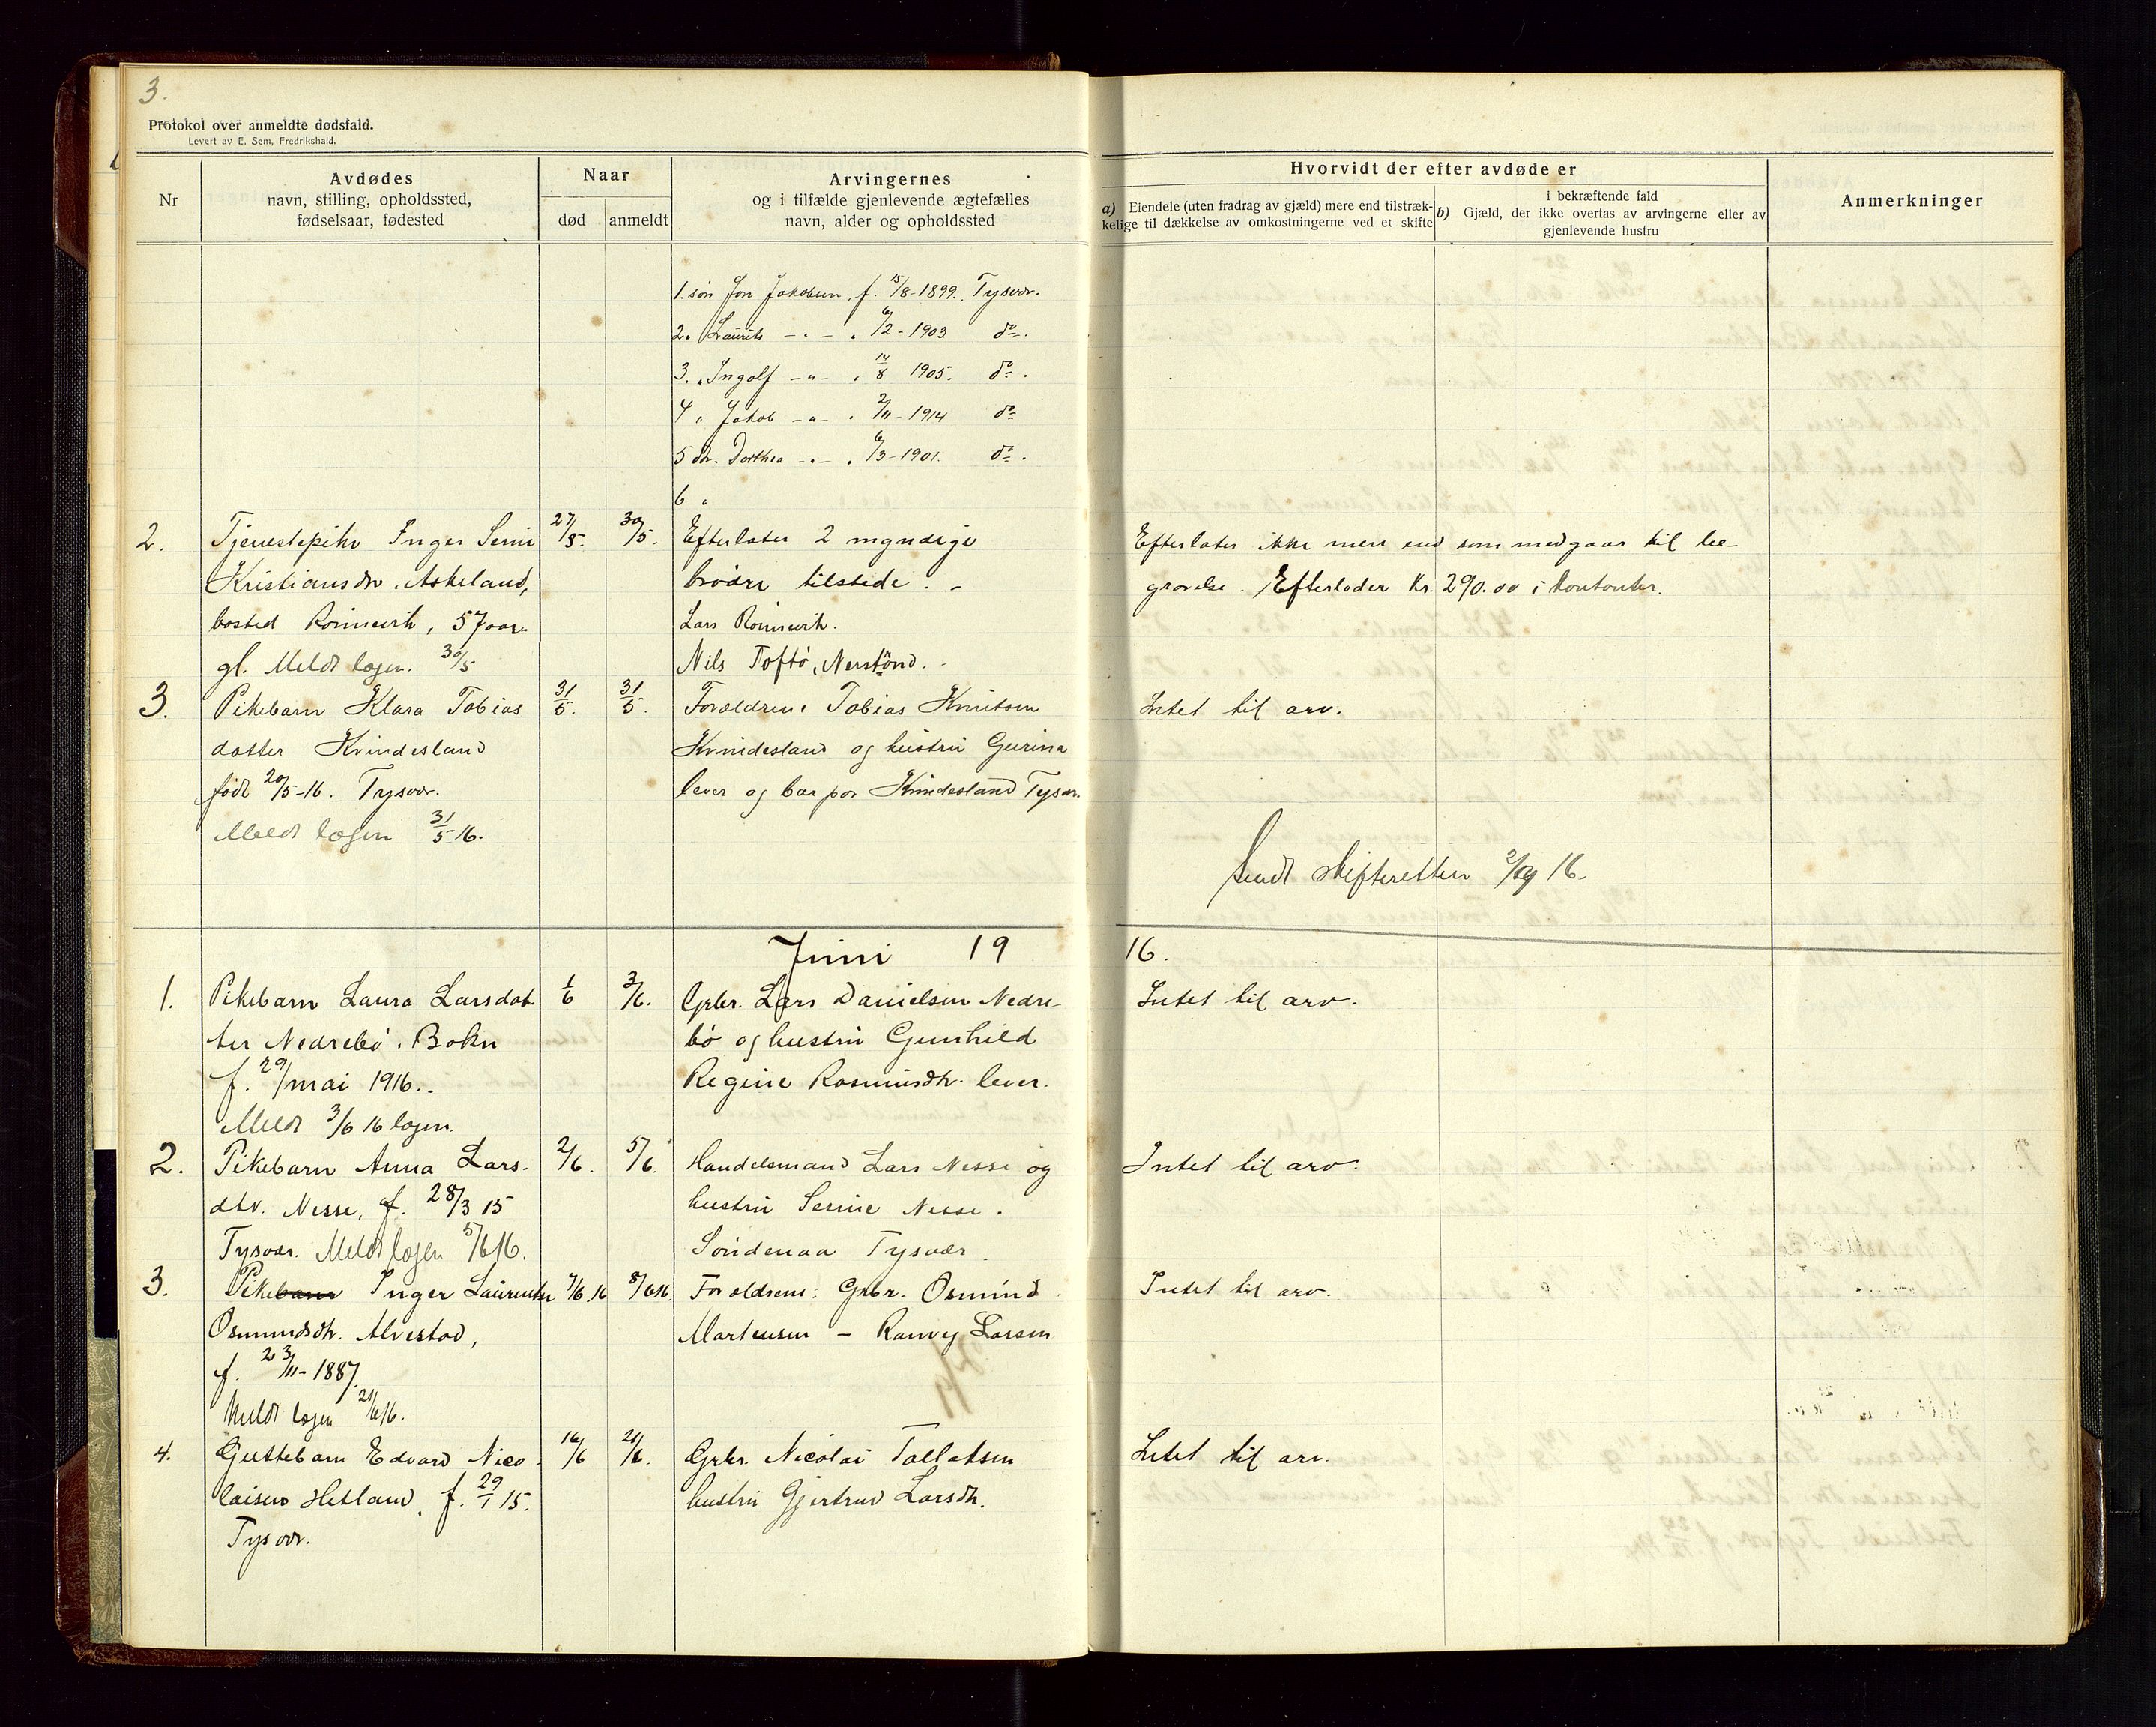 3.
Protokol over anmeldte dødsfald.
Levert av E. Sem, Fredrikshald.
Nr
Avdødes
navn, stilling, opholdssted,
fødselsaar, fødested
Naar
død
anmeldt
Arvingernes
og i tilfælde gjenlevende ægtefælles
navn, alder og opholdssted
Hvorvidt der efter avdøde er
a) Eiendele (uten fradrag av gjæld) mere end tilstræk-
kelige til dækkelse av omkostningerne ved et skifte
b) i bekræftende fald
Gjæld, der ikke overtas av arvingerne eller av
gjenlevende hustru
Anmerkninger
1. søn Jon Jakobsen, f. 15/8-1899. Tysvær.
2. " Laurits - " - " 6/2-1903 do.
3. " Ingolf - " - " 14/8 1905. do.
4 " Jakob - " - " 2/11-1914 do
5 dtr. Dorthea - " - " 6/3-1901. do.
6 "
2. Tjenestepike Inger Serine
Kristiansdtr. Askeland,
bosted Rönnevik, 57 aar
gl. Meldt lægen. 30/5
27/5. 30/5.
Efterlater 2 myndige
brödre tilstede. -
Lars Rönnevik.
Nils Toftö, Nerstrand.
Efterlater ikke mere end som medgaar til be-
gravelse. Efterlader Kr. 290.00 i kontanter.
3. Pikebarn Klara Tobias
datter Kvindesland
født 20/5-16. Tysvær.
Meldt lægen 31/5 16.
31/5. 31/5.
Forældrene Tobias Knutsen
Kvindesland og hustru Gurina
lever og bor paa Kvindesland Tysvær.
Intet til arv.
Sendt skifteretten 2/6 16.
Juni 1916.
1. Pikebarn Laura Larsdat
ter Nedrebö. Bokn
f. 29/mai 1916..
Meldt 3/6 16 lægen.
1/6 3/6.
Grbr. Lars Danielsen Nedre-
bö og hustru Gunhild
Regine Rasmusdtr. lever.
Intet til arv.
2. Pikebarn Anna Lars-
dtr. Nesse, f. 28/3 15
Tysvær. Meldt lægen 5/6 16.
2/6. 5/6.
Handelsmand Lars Nesse og
hustru Serine Nesse.
Söndenaa Tysvær.
Intet til arv.
3. Pikebarn Inger Laurentse
Osmundsdtr. Alvestad,
f. 23/11-1887.
Meldt lægen 21/6 16.
7/6.16 8/6 16.
Forældrene: Grbr. Osmund
Martensen - Ranvey Larsen
Intet til arv.
4. Guttebarn Edvard Nico-
laisen Hetland, f. 29/1 15.
Tysvær.
16/6 21/6.
Grbr. Nicolai Tollaksen
hustru Gjertrud Larsdtr.
Intet til arv.